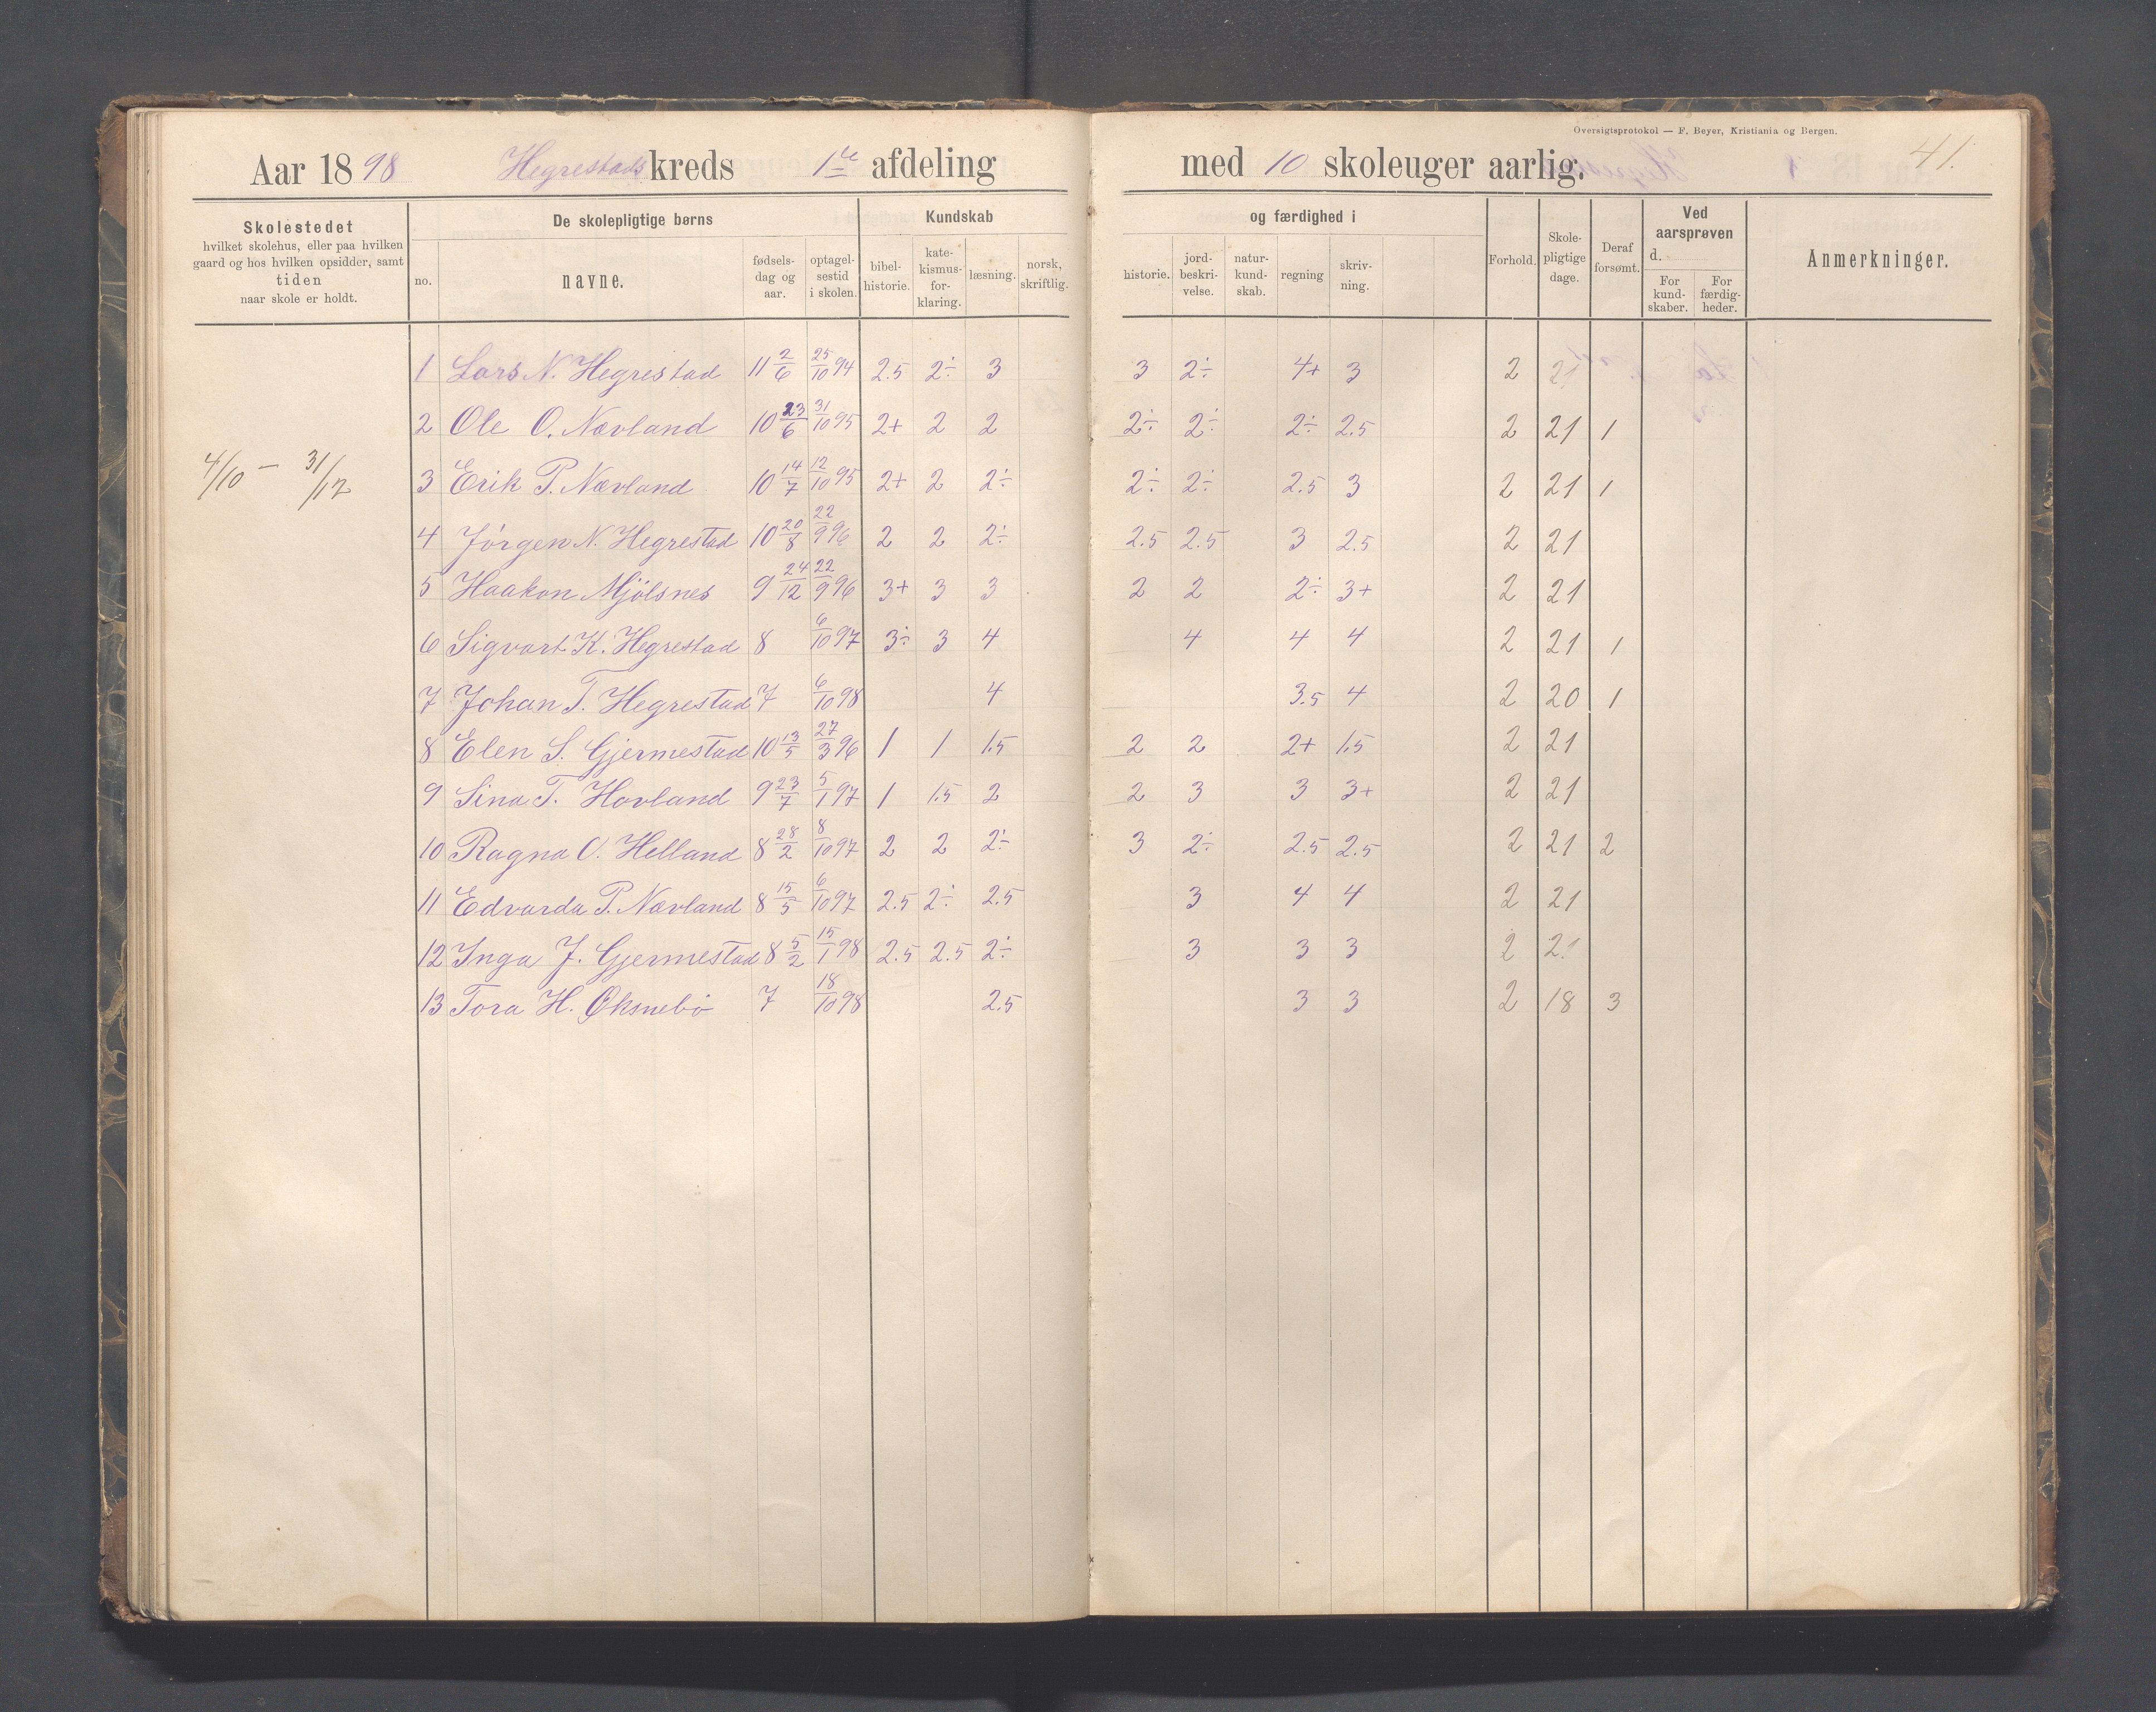 Oversigtsprotokol — F. Beyer, Kristiania og Bergen.
41.
Aar 1898 Hegrestads kreds 1ste afdeling med 10 skoleuger aarlig.
Skolestedet
hvilket skolehus, eller paa hvilken
gaard og hos hvilken opsidder, samt
tiden
naar skole er holdt.
De skolepligtige børns
no.
navne.
fødsels-
dag og
aar.
optagel-
sestid
i skolen.
Kundskab
bibel-
historie.
kate-
kismus-
for-
klaring.
læsning.
norsk,
skriftlig.
og færdighed i
historie.
jord-
beskri-
velse.
natur-
kund-
skab.
regning
skriv-
ning.
Forhold.
Skole-
pligtige
dage.
Deraf
forsømt.
Ved
aarsprøven
d.
For
kund-
skaber.
For
færdig-
heder.
Anmerkninger.
4/10 – 31/12
1 Lars N. Hegrestad 11 2/6 25/10 94 2.5 2÷ 3 3 2÷ 4+ 3 2 21
2 Ole O. Nævland 10 23/6 31/10 95 2+ 2 2 2÷ 2÷ 2÷ 2.5 2 21 1
3 Erik P. Nævland 10 14/7 12/10 95 2+ 2 2÷ 2÷ 2÷ 2.5 3 2 21 1
4 Jörgen N. Hegrestad 10 20/8 22/9 96 2 2 2÷ 2.5 2.5 3 2.5 2 21
5 Haakon Mjölsnes 9 24/12 22/9 96 3+ 3 3 2 2 2÷ 3+ 2 21
6 Sigvart K. Hegrestad 8 6/10 97 3÷ 3 4 4 4 4 2 21 1
7 Johan T. Hegrestad 7 6/10 98 4 3.5 4 2 20 1
8 Elen S. Gjermestad 10 13/5 27/3 96 1 1 1.5 2 2 2+ 1.5 2 21
9 Sina T. Hovland 9 23/7 5/1 97 1 1.5 2 2 3 3 3+ 2 21
10 Ragna O. Helland 8 28/2 8/10 97 2 2 2÷ 3 2÷ 2.5 2.5 2 21 2
11 Edvarda P. Nævland 8 15/5 6/10 97 2.5 2÷ 2.5 3 4 4 2 21
12 Inga J. Gjermestad 8 5/2 15/1 98 2.5 2.5 2÷ 3 3 3 2 21
13 Tora H. Øksnebö 7 18/10 98 2.5 3 3 2 18 3